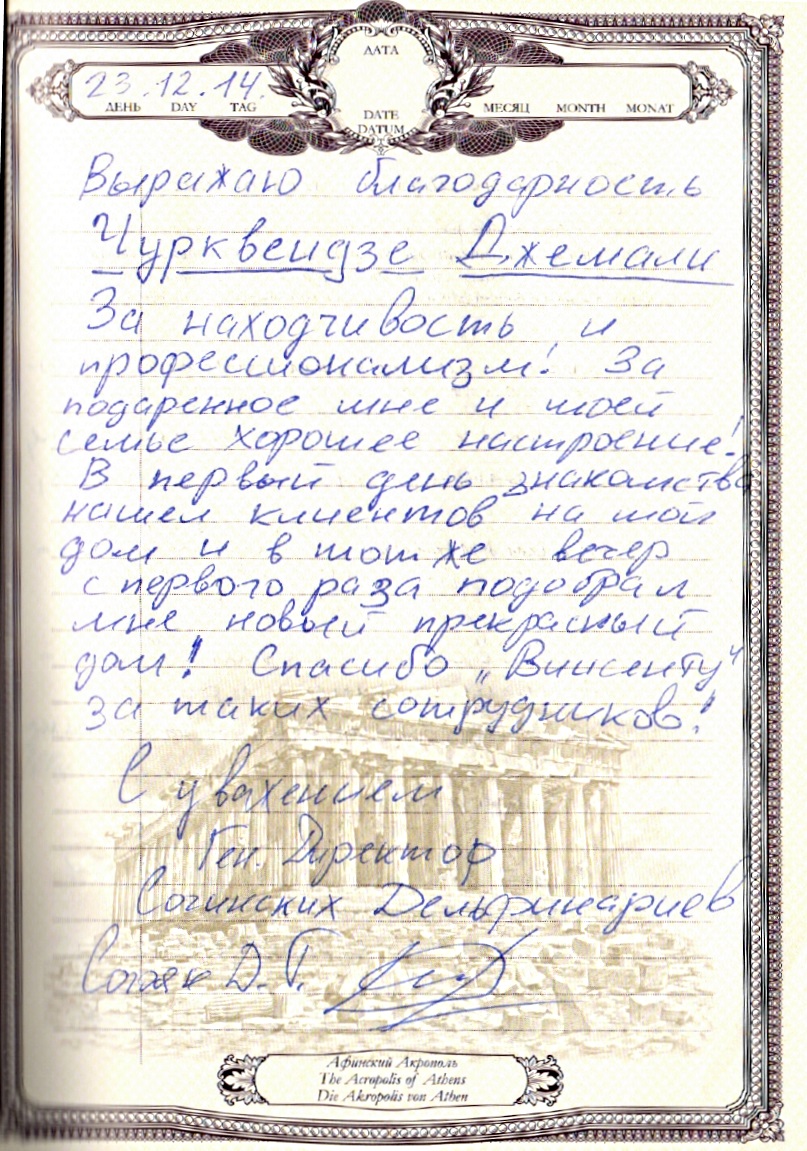 ДАТА
23.12.14.
ДЕНЬ DAY TAG
DATE
DATUM
МЕСЯЦ MONTH MONAT
Выражаю благодарность
Чурквеидзе Джемали
За находчивость и
профессионализм! За
подаренное мне и моей
семье хорошее настроение!
В первый день знакомства
нашел клиентов на мой
дом и в тот же вечер
с первого раза подобрал
мне новый прекрасный
дом! Спасибо „Винсенту"
за таких сотрудников!
С уважением
Ген. Директор
Сочинских Дельфинариев
Д.Г.
Афинский Акрополь
The Acropolis of Athens
Die Akropolis von Athen